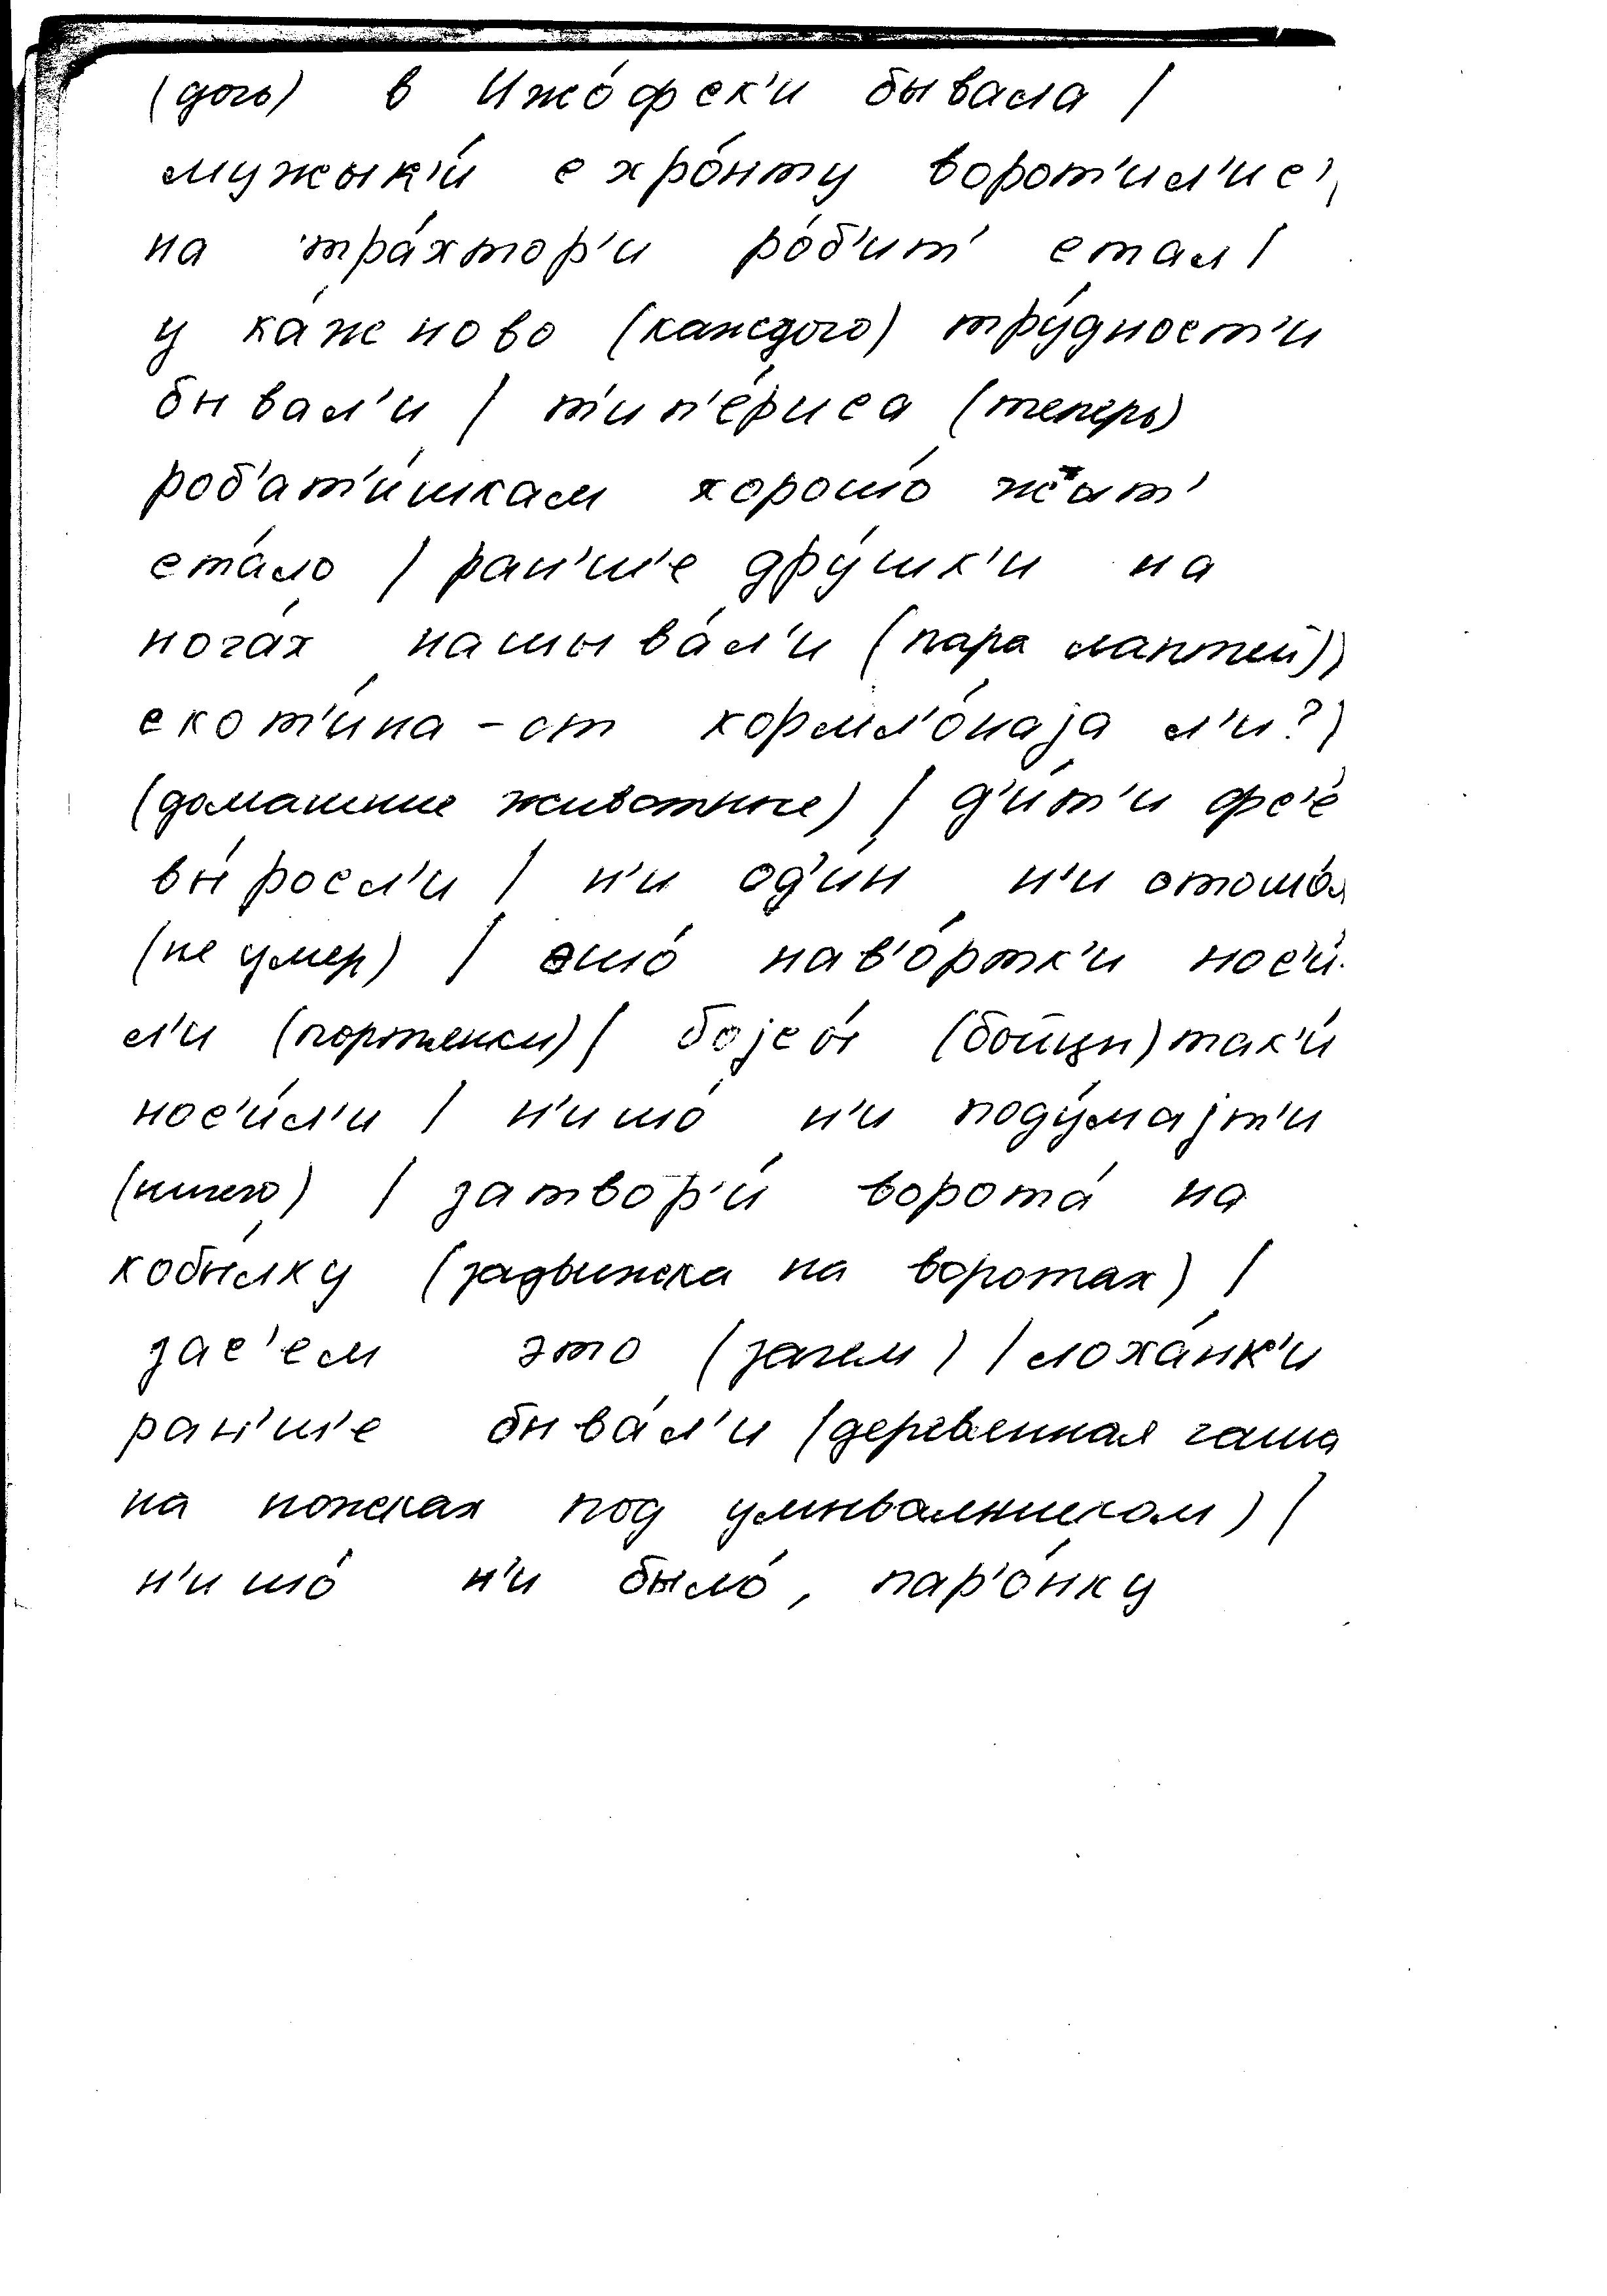 (дочь) в Ижо́фск'и бывала |
мужык'и́ с хро́нту ворот'ил'ис' |
на тра́хтор'и ро́б'ит' стал |
у ка́жново (каждого) тру́дност'и
бывал'и | т'ип'е́риса (теперь)
роб'ат'и́шкам хорошо́ жыт'
ста́ло | ран'ш'е дру́шк'и на
нога́х нашыва́л'и (пара лаптей) |
скот'и́на-от кормл'о́наја л'и? |
(домашние животные) | д'и́т'и фс'е́
вы́росл'и | н'и од'и́н н'и отошо́л
(не умер) | ошо́ нав'о́ртк'и нос'и́-
л'и (портянки) | бојсы́ (бойцы) так'и́
нос'и́л'и | н'ишо́ н'и поду́мајт'и
(ничего) | затвор'и́ ворота́ на
кобы́лку (задвижка на воротах) |
зас'ем это (зачем) | лоха́нк'и
ран'ш'е быва́л'и (деревенная чаша
на ножках под умывальником) |
н'ишо́ н'и было́, пар'о́нку